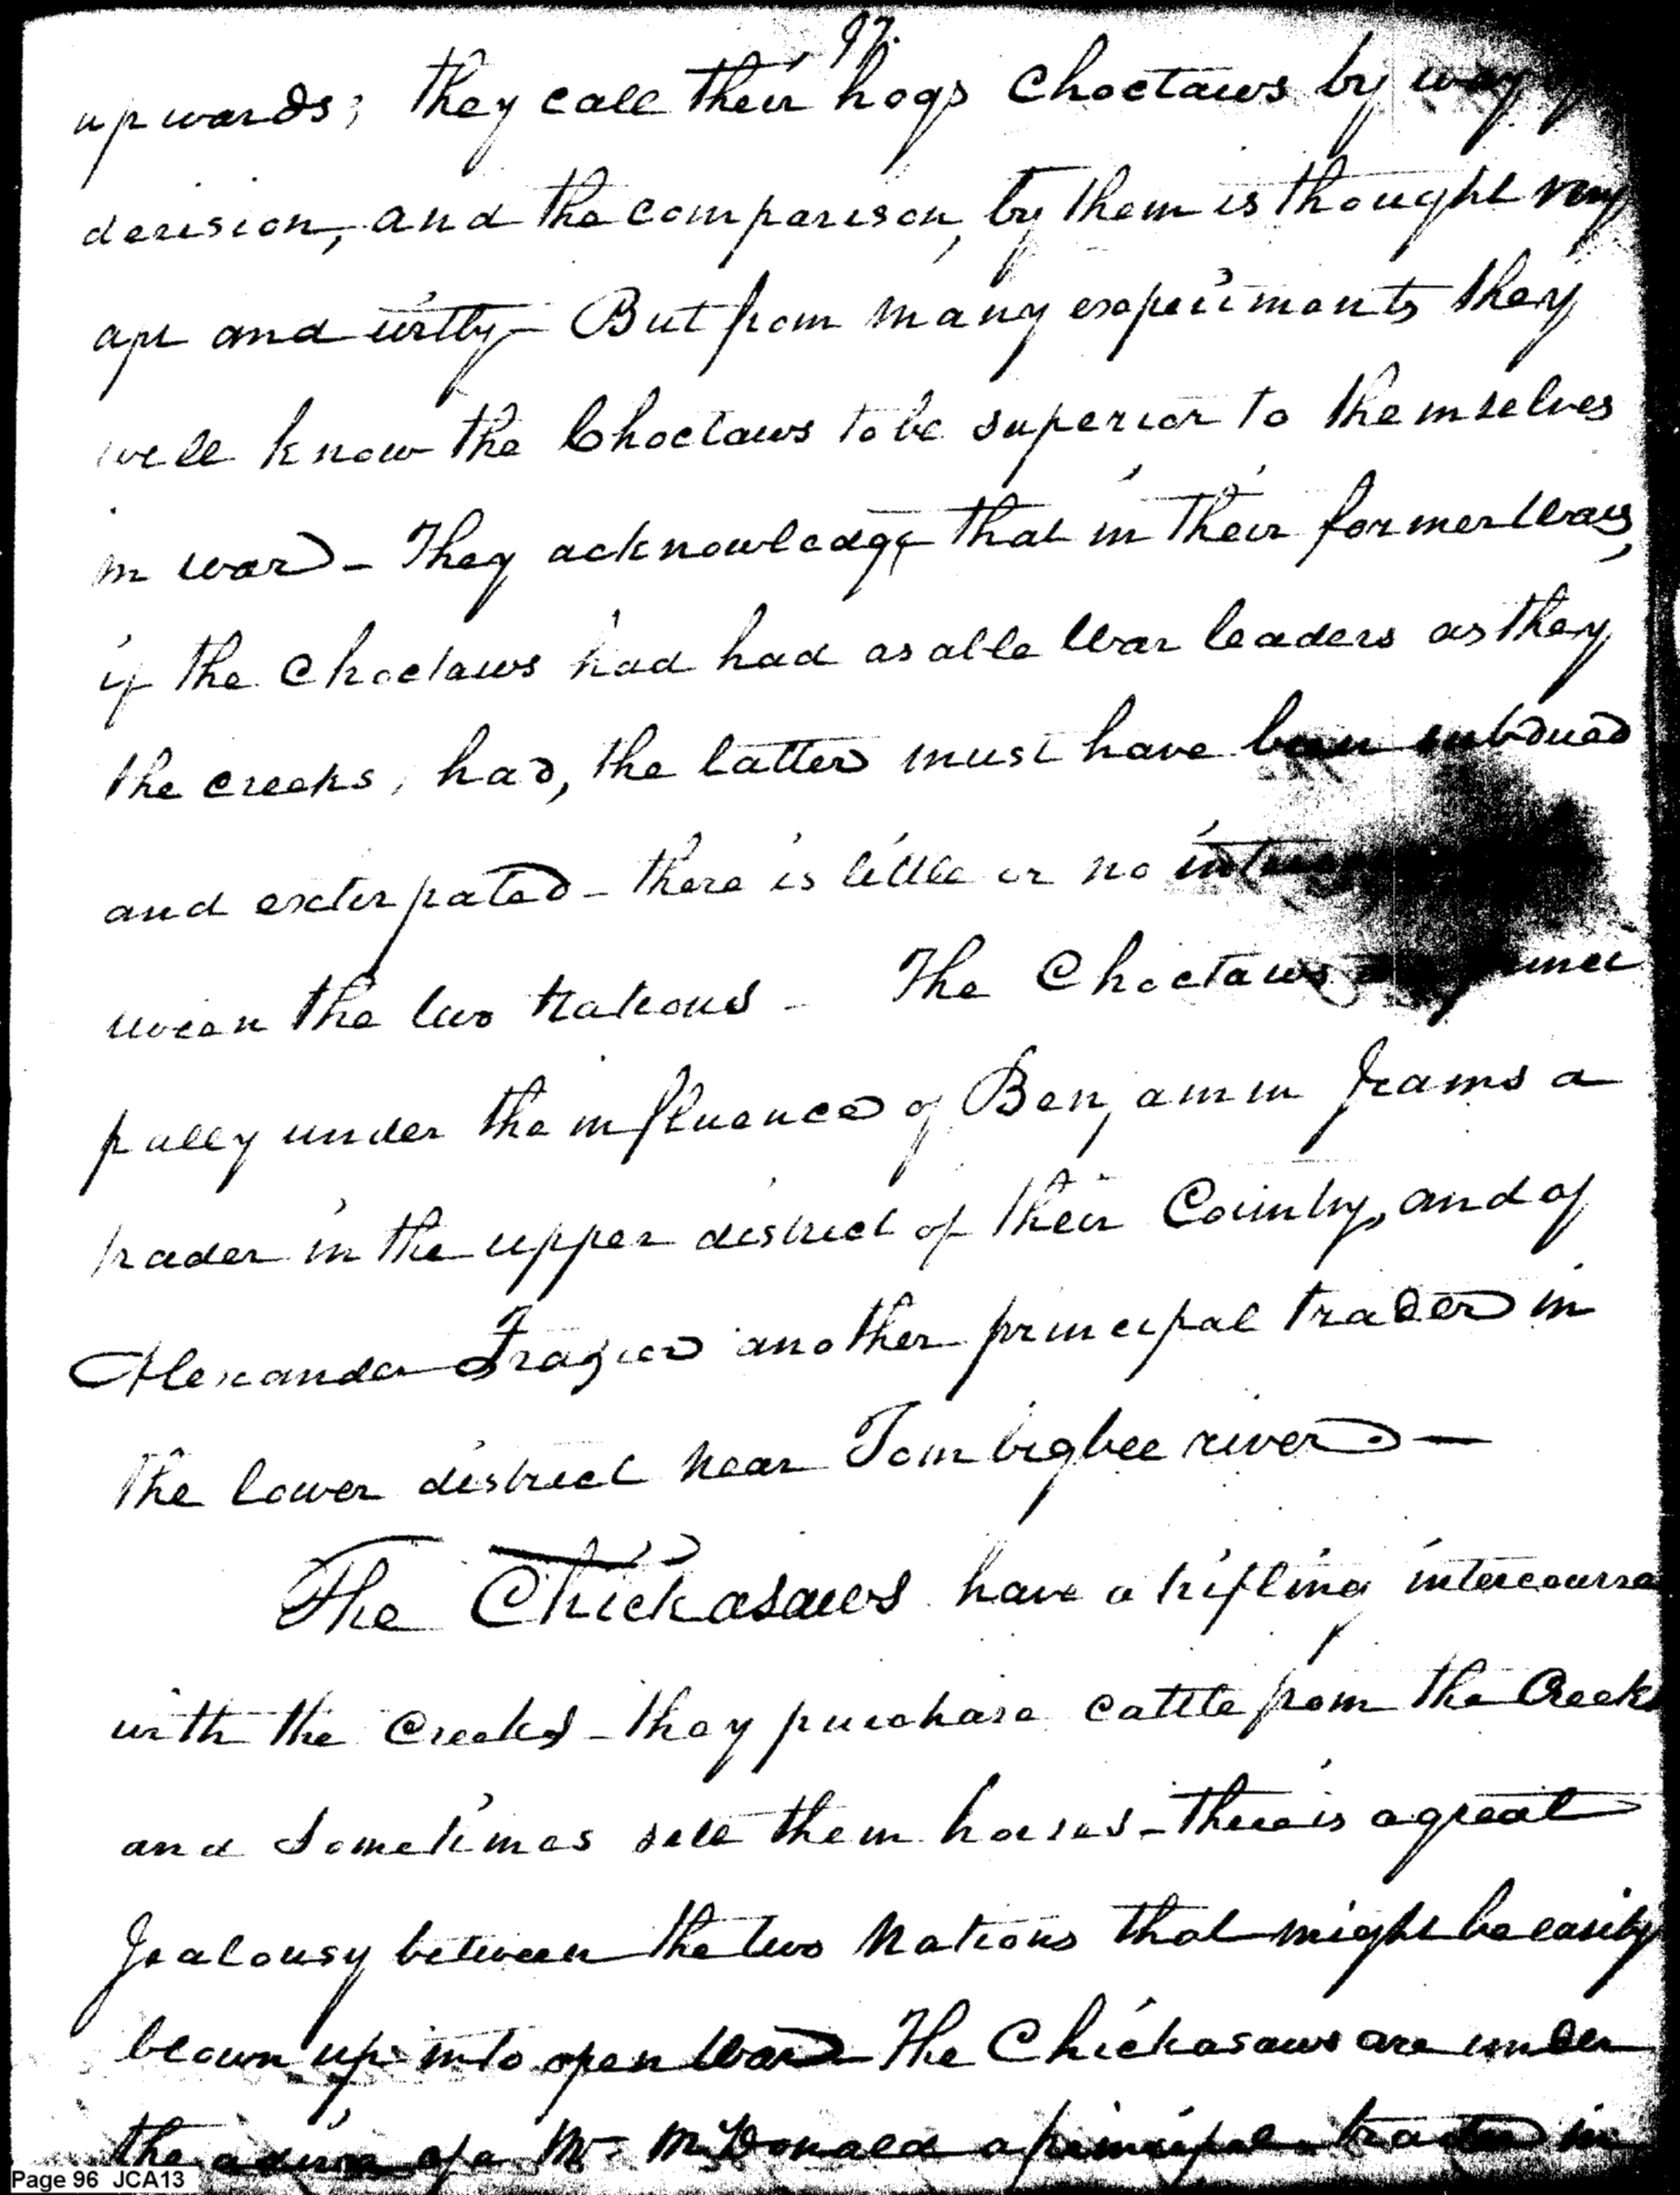 97.
upwards; they call their hogs Choctaws by way
derision, and the comparison, by them is thought very
apt and witty - But from many experiments they
well know the Choctaws to be superior to themselves
in war - They acknowledge that in their former Wars,
if the Choctaws had had as able War leaders as they
the creeks, had, the latter must have been subdued
and exterpated - there is little or no
tween the two Nations - The Choctaws princi
pally under the influence of Benjamin Jeams a
trader in the upper district of their Country, and of
Alexander Frazier another principal trader in
the lower district near Tombigbee river —
The Chickasaws have a trifling intercourse
with the Creeks - they purchase cattle from the Creeks
and sometimes sell them horses - there is a great
Jealousy between the two Nations that might be easily
blown up into open War - The Chickasaws are under
the advice of a Mr. McDonald a principal trader in
Page 96 JCA13